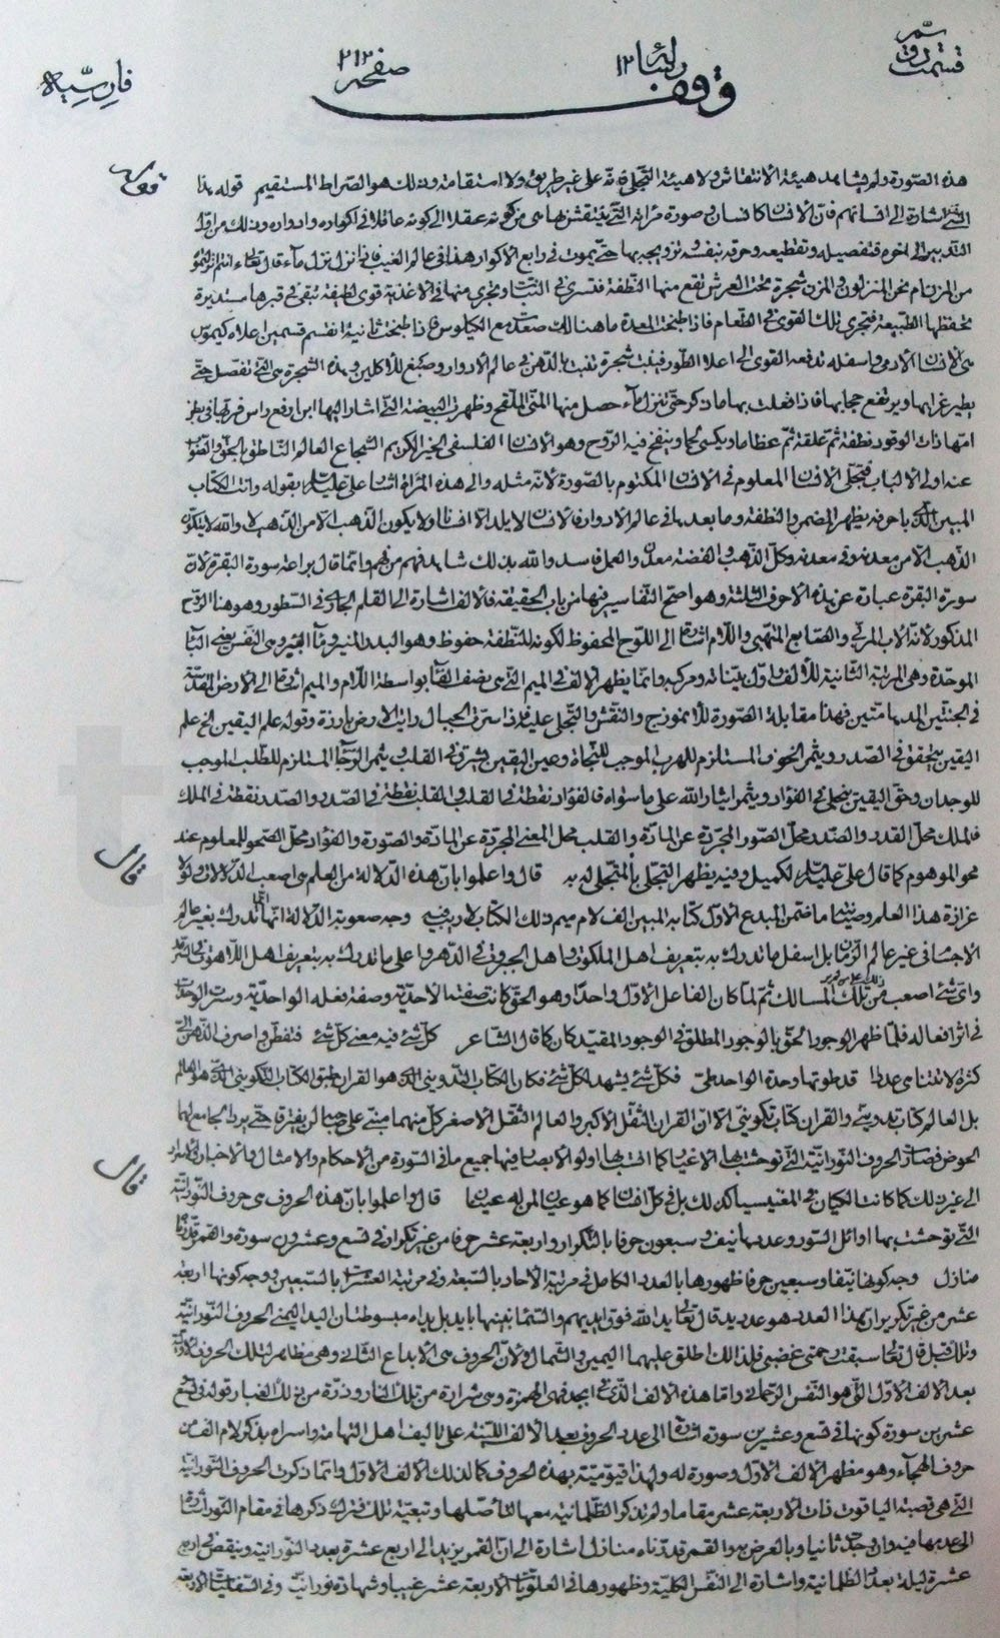 قسمت
رسالة ١٢
صفحه ٢١٢
وقف
هذه الصورة ولم يشاهد هيئة الانتقاش ولا هيئة التجلي على غير طريق ولا استقامة وذلك هو الصراط المستقيم قوله
اشارة الى انسانهم فان الانسان كانسان وصورة من كونه عقلا الى كونه عاقلا في اكواره وادواره وذلك من اول
الى اخره فتفصيله وتقطيعه وحرقه بنفسه وتزويجه بها حتى يموت في رابع الاكوار هذا في عالم الغيب نزل ماء قال تعالى ءانتم انزلتموه
من المزن ام نحن المنزلون وفي المزن شجرة تحت العرش تقع منها النطفة فتسري في النبات وتجري منها في الاغذية قوى لطيفة تبقى في قبرها مستديرة
تحفظها الطبيعة فتجري تلك القوى في الطعام فاذا طبخت المعدة ما هنالك صعدت مع الكيلوس فاذا طبخت ثانية انقسم قسمين اعلاه كيموس
الانسان الادمي واسفله تدفعه القوى الى اعلا الطور فينبت شجرة تنبت بالدهن في عالم الادوار وصبغ للاكلين وهذه الشجرة هي التي تفصل حتى
يطير غرابها ويرتفع حجابها فاذا فعلت بها ما ذكر حتى تنزل ماء حصل منها المني الملقح وظهرت البيضة التي اشار اليها ابن ارفع راس
امها ذات الوقود نطفة ثم علقة ثم عظاما ويكسى لحما وينفخ فيه الروح وهو الانسان الفلسفي الخير الكريم الشجاع العالم الناطق بالحق والصواب
عند اولي الالباب فتجلى الانسان المعلوم في الانسان المكتوم بالصورة لانه مثله والى هذه المراة اشار علي عليه السلام بقوله وانت الكتاب
المبين الذي باحرفه يظهر المضمر والنطفة وما بعدها في عالم الادوار فالانسان لا يلد الا انسانا ولا يكون الذهب الا من الذهب والله لا يتكون
الذهب الا من معدنه وفي معدنه وكل الذهب والفضة معدن والعمل فاسد والله بذلك شاهد فافهم من فهم وانما قال براعة سورة البقرة لان
سورة البقرة عبارة عن هذه الاحرف الثلثة وهو اصح التفاسير فيها من باب الحقيقة فالالف اشارة الى القلم الجاري في السطور وهو هنا الروح
المذكور لانه الاب المربي والصانع المنهي واللام اشارة الى اللوح المحفوظ لكونه للنطفة حفوظ وهو البدر المنير وهي النفس
الموحدة وهي المرتبة الثانية للالف واول بيناته ومركبه وانما يظهر الالف في الميم التي هي بصف بواسطة اللام والميم اشارة الى الارض المقدسة
في الجنتين المدهامتين فهذا مقابلة الصورة للانموذج والنقش والتجلي عليه فاذا سرت الجبال رايت الارض بارزة وقوله علم اليقين الخ علم
اليقين يتحقق في الصدر ويثمر الخوف المستلزم للهرب الموجب للنجاة وعين اليقين يشرق في القلب ويثمر الرجا المستلزم للطلب الموجب
للوجدان وحق اليقين يتجلى في الفؤاد ويثمر ايثار الله على ما سواه فالفؤاد نقطة في القلب والقلب نقطة في الصدر والصدر نقطة في الملك
فالملك محل القدر والصدر محل الصور المجردة عن المادة والقلب محل المعنى المجردة عن المادة والصورة والفؤاد محل الصحو للمعلوم عند
محو الموهوم كما قال علي عليه السلام لكميل وفيه يظهر التجلي بالمتجلي له به قال واعلموا بان هذه الدلالة من العلم هي اصعب الدلالات
غزارة هذا العلم وصيته ما ضمن المبدع الاول كتابه المبين الف لام ميم ذلك الكتاب لا ريب فيه وجه صعوبة الدلالة انها تدرك بغير عالم
الاجسام في غير عالم الزمان بل اسفل ما تدرك به بتعريف اهل الملكوت اهل الجبروت في الدهر واعلى ما تدرك به بتعريف اهل اللاهوت
واي شئ اصعب من تلك المسالك ثم لما كان الفاعل الاول واحدا وهو الحق كانت صفته الاحدية وصفة فعله الواحدية وسرت
في اثر افعاله فلما ظهر الوجود الحق بالوجود المطلق في الوجود المقيد كان كما قال الشاعر كل شئ فيه معنى كل شئ فتفطن واصرف الذهن الي
كثرة لا تتناهى عددا قد طوتها وحدة الواحد طي فكل شئ يشهد لكل شئ فكان الكتاب التدويني الذي هو القران طبق الكتاب التكويني الذي هو العالم
بل العالم كتاب تدويني والقران كتاب تكويني الا ان القران الثقل الاكبر والعالم الثقل الاصغر كل منهما مبني على صاحبه لن يفترقا حتى يردا
الحوض فصارت الحروف النورانية التي توحشت بها الاغيار كما اولوا الابصار فيها جميع ما في السورة من الاحكام والامثال والاخبار
الى غير ذلك كما كانت الكيان في المغنيسيا كذلك بل في كل انسان كما هو عيان لمن له عينان قال واعلموا بان هذه الحروف هي حروف النورانية
التي توحشت بها اوائل السور وعددها نيف وسبعون حرفا بالتكرار واربعة عشر حرفا من غير تكرار في تسع وعشرون سورة والقمر قدرناه
منازل وجه كونها نيفا وسبعين حرفا ظهورها بالعدد الكامل في مرتبة الاحاد بالسبعة وفي مرتبة العشرات بالسبعين ووجه كونها اربعة
عشر من غير تكرير ان هذا العدد هو عدد يد قال تعالى يد الله فوق ايديهم والسماء بنيناها بايد بل يداه مبسوطتان اليد اليمنى الحروف النورانية
قال تعالى سبقت رحمتي غضبي فلذلك اطلق عليهما اليمين والشمال ولان الحروف هي الابداع الثاني وهي مظاهر لتلك الحروف
بعد الالف الاول التي هو النفس الرحماني واما هذه الالف الذي في ابجد فهي الهمزة وهي شرارة من تلك النار وذرة من ذلك الغبار قوله في تسع
عشرين سورة كونها في تسع وعشرين سورة اشارة الى عدد الحروف بعد الالف اللينة على تاليف اهل التهامة واسراه بذكر لام الف من
حروف الهجاء وهو مظهر الالف الاول وصورة له ولهذا قيوميته بهذه الحروف كما لذلك الالف الاول وانما ذكرت الحروف النورانية
التي هي قصبة الياقوت ذات الاربعة عشر مقاما ولم تذكر الظلمانية معها لتاصلها وتبعية تلك فترك ذكرها في مقام النور اشارة
الى عدمها فيه وان وجدت ثانيا وبالعرض والقمر قدرناه منازل اشارة الى ان القمر يزيد الى اربع عشرة بعدد النورانية وينقص في اربع
عشرة ليلة بعدد الظلمانية واشارة الى النفس الكلية وظهورها في العلويات الاربعة عشر غيبا وشهادة نورانية وفي السفليات الاربعة
قوله
قال
قال